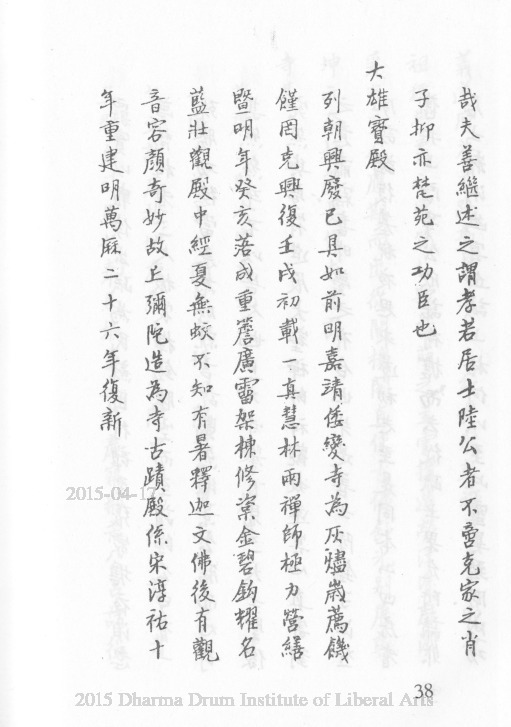 哉夫善繼述之謂孝若居士陸公者不啻克家之肖
子抑亦梵苑之功臣也
大雄寶殿
列朝興廢已具如前明嘉靖倭變寺為灰燼歲薦饑
饉罔克興復壬戌初載一真慧林兩禪師極力營繕
暨明年癸亥落成重簷廣霤架棟修榱金碧鈎耀名
藍壯觀殿中經夏無蚊不知有暑釋迦文佛後有觀
音容顏奇妙故丘彌陀造為寺古蹟殿係宋淳祐十
年重建明萬厤二十六年復新
2015-04-17
38
2015 Dharma Drum Institute of Liberal Arts